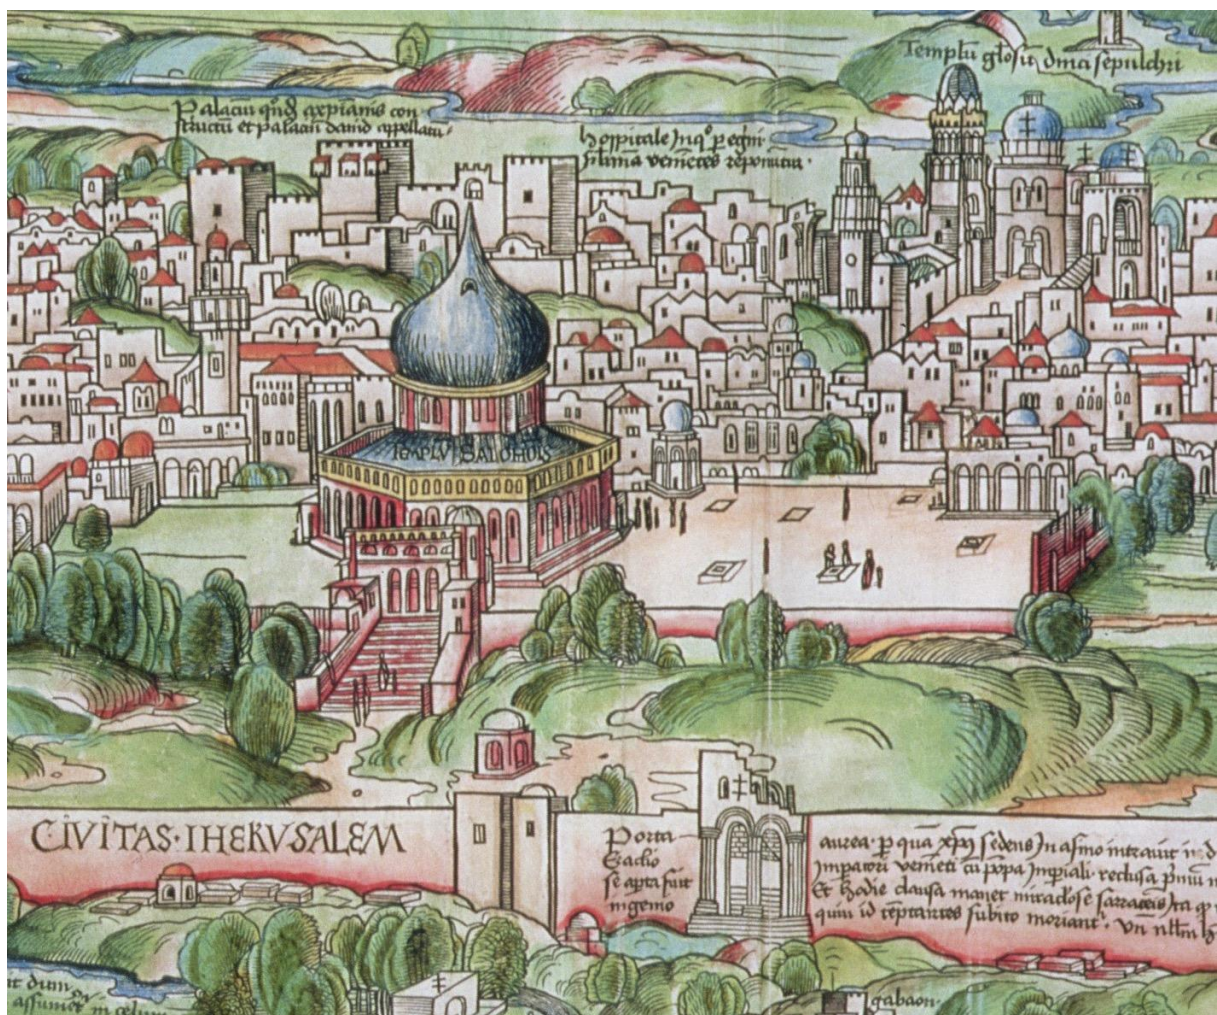 Templũ glosũ dnici sepulchri
Palaciũ qd̃ a xpianis con
structũ et palaciũ dauid appellatũ
hospitale Inqº peregrini
venietes reponũtur
TEMPLVM SALOMOIS
CIVITAS·IHERVSALEM
Porta
se apta fuit
ingenio
aurea· p quã xps̃ sedens In asino intrauit
Impatori venieti cũ põpa Impiali reclusa
Et hodie clausa manet miraclose sarracẽis Ita qp
quiũ id tẽptantes subito moriant·
it dum
assumet in celum
gabaon·